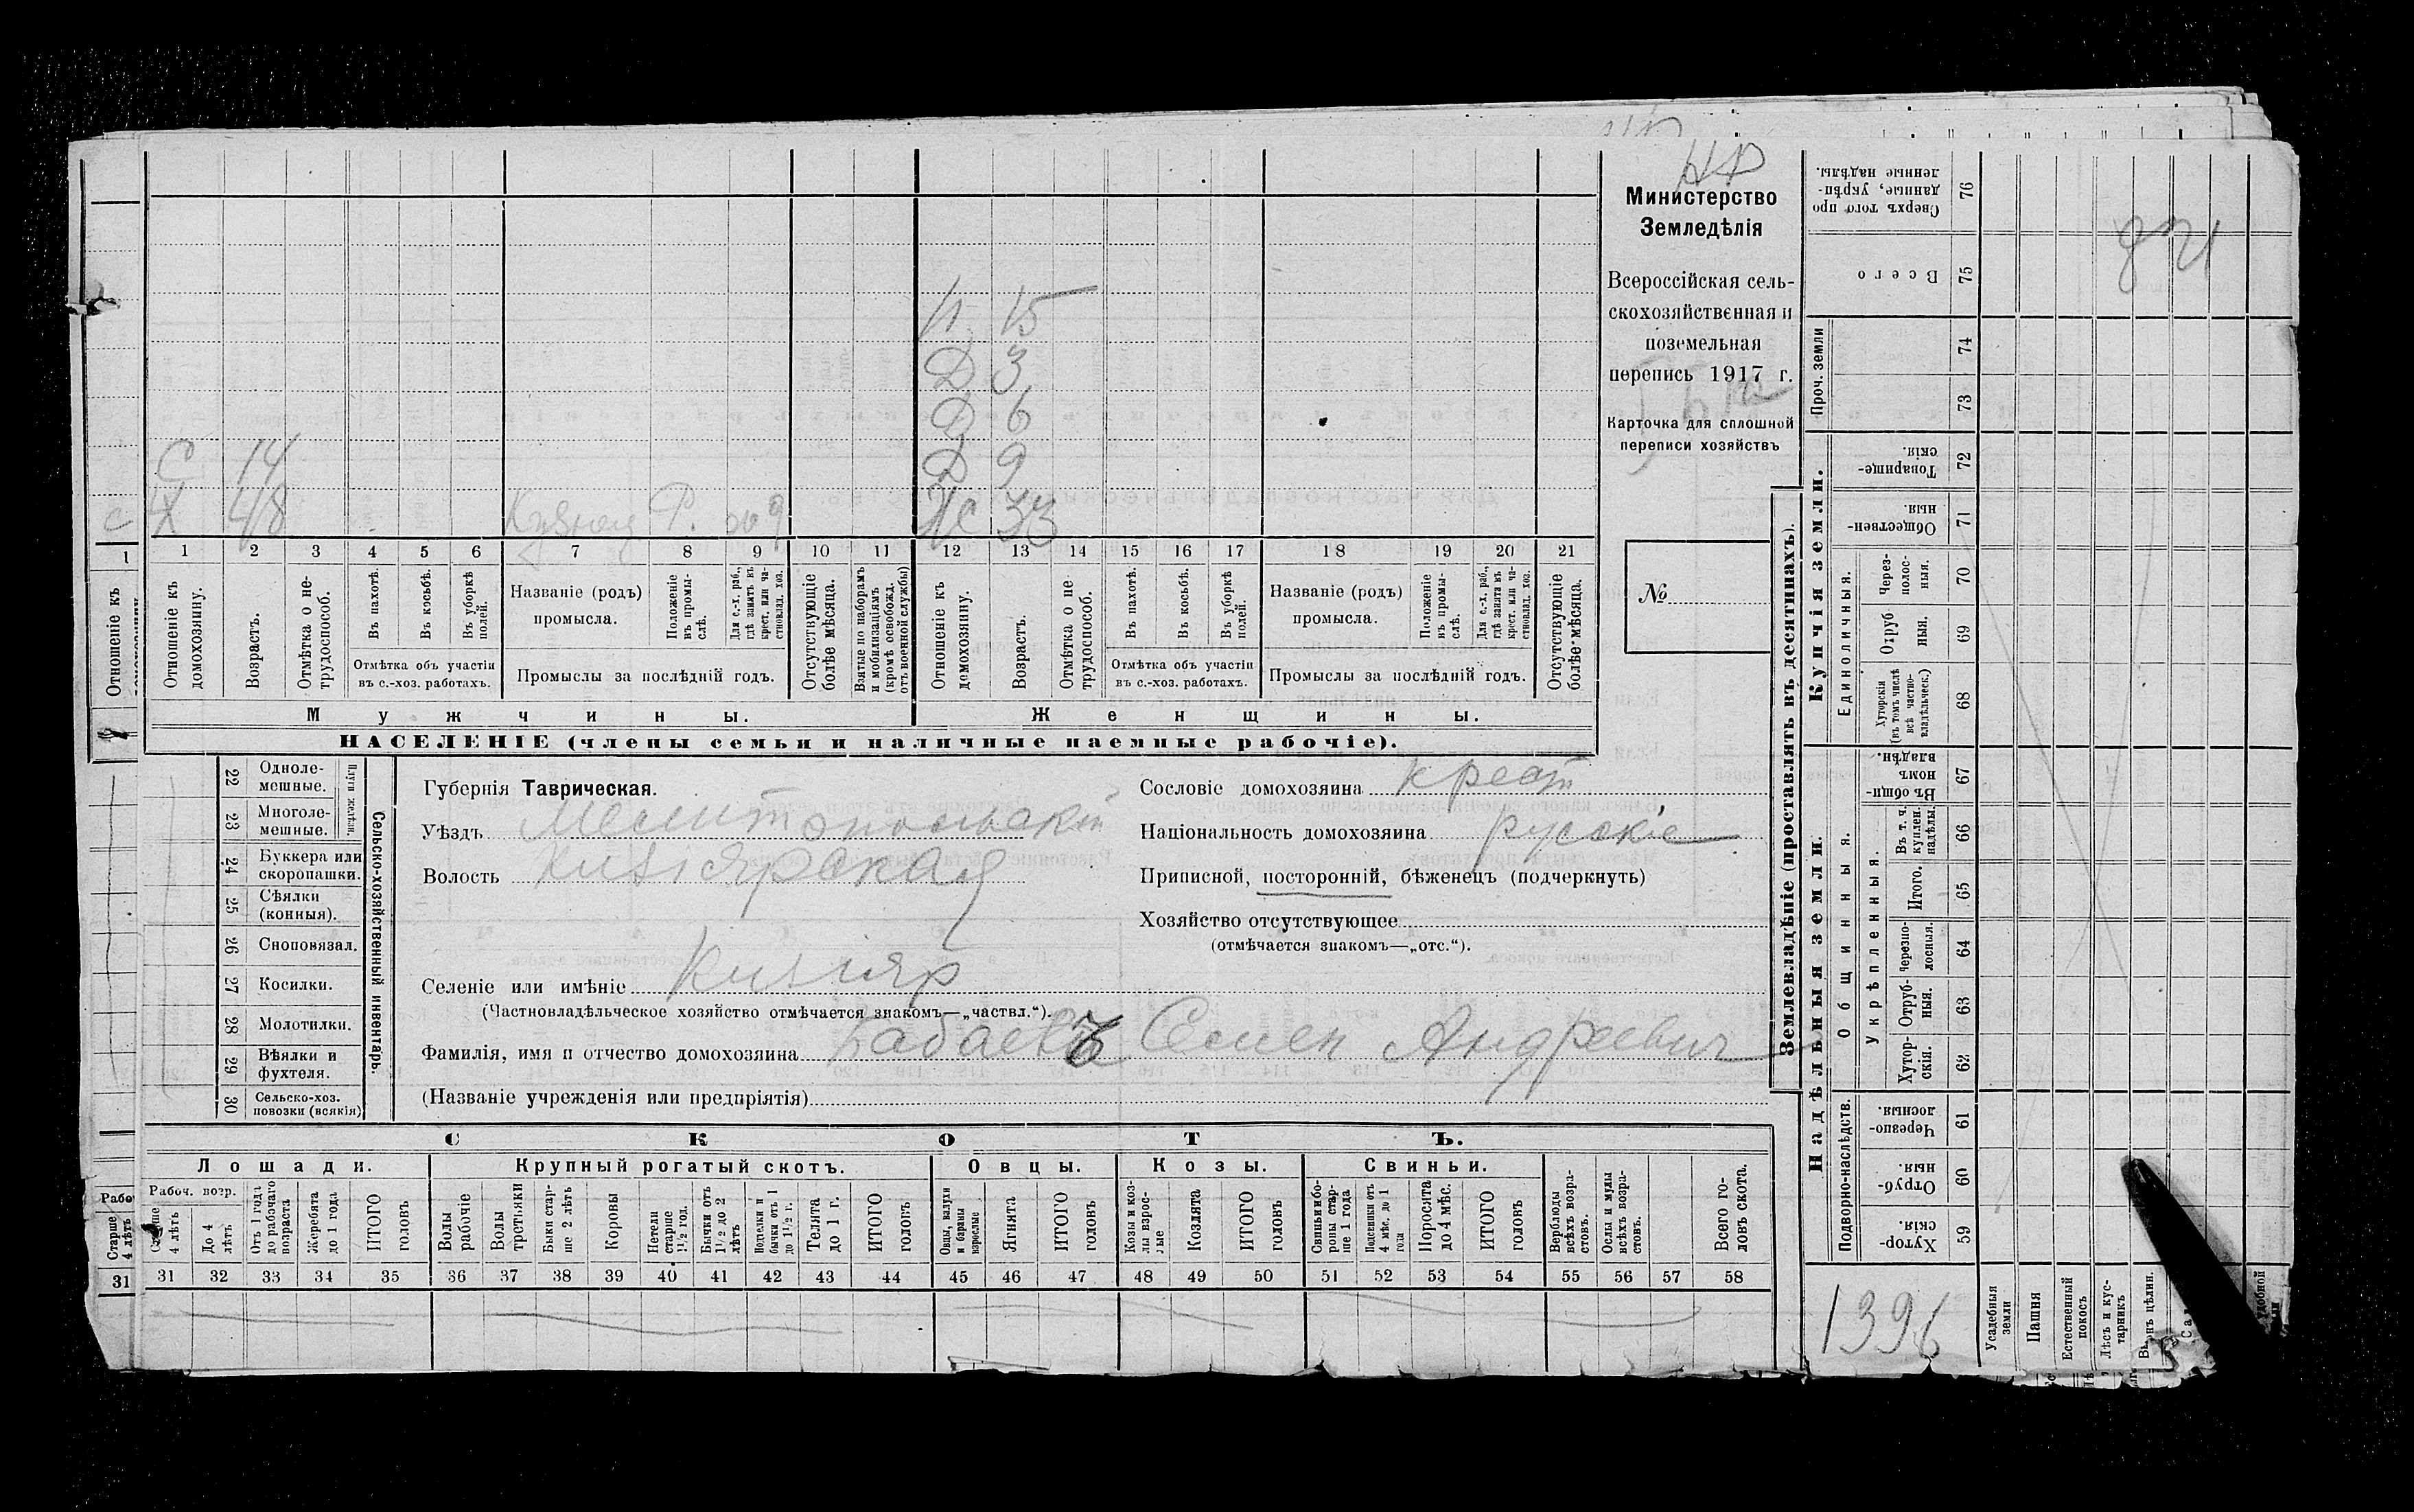 НФ
Министерство
Земледѣлія
Всероссійская сель-
скохозяйственная и
поземельная
перепись 1917 г.
Карточка для сплошной
переписи хозяйствъ
№
П 15
Д 3
Д 6
Д 9
С 14
Х 48
Ж 33
С
1 2 3 4 5 6 7 8 9 10 11 12 13 14 15 16 17 18 19 20 21
Отношеніе къ домохозяину.
Возрастъ.
Отмѣтка о не-трудоспособ.
Въ пахотѣ.
Въ косьбѣ.
Въ уборкѣ полей.
Отмѣтка объ участіи
въ с.-хоз. работахъ.
Названіе (родъ)
промысла.
Положеніе въ промы-слѣ.
Для с.-х. раб., гдѣ занятъ въ крест. или ча-стновлад. хоз.
Промыслы за послѣдній годъ.
Отсутствующіе болѣе мѣсяца.
Взятые по наборамъ и мобилизаціямъ (кромѣ освобожд. отъ военной службы)
Отношеніе къ домохозяину.
Возрастъ.
Отмѣтка о не трудоспособ.
Въ пахотѣ.
Въ косьбѣ.
Въ уборкѣ полей.
Отмѣтка объ участіи
въ с.-хоз. работахъ.
Названіе (родъ)
промысла.
Положеніе въ промы-слѣ.
Для с.-х. раб., гдѣ занята въ крест. или ча-стновлад. хоз.
Промыслы за послѣдній годъ.
Отсутствующіе болѣе мѣсяца.
Мужчины.
Женщины.
НАСЕЛЕНІЕ (члены семьи и наличные наемные рабочіе).
22 Одноле-мешные.
23 Многоле-мешные.
Плуги желѣзн.
24 Буккера или скоропашки.
25 Сѣялки (конныя).
26 Сноповязал.
27 Косилки.
28 Молотилки.
29 Вѣялки и фухтеля.
30 Сельско-хоз. повозки (всякія)
Сельско-хозяйственный инвентарь.
Губернія Таврическая.
Уѣздъ Мелитопольскій
Волость Кизіярская
Селеніе или имѣніе Кизіяр
(Частновладѣльческое хозяйство отмѣчается знакомъ—„частвл.“).
Фамилія, имя и отчество домохозяина Бабаевъ Семен Андреевич
(Названіе учрежденія или предпріятія)
Сословіе домохозяина крест
Національность домохозяина русскіе
Приписной, посторонній, бѣженецъ (подчеркнуть)
Хозяйство отсутствующее
(отмѣчается знакомъ—„отс.“).
СКОТЪ.
Лошади.
Крупный рогатый скотъ.
Овцы.
Козы.
Свиньи.
Рабоч. возр.
Старше 4 лѣтъ
До 4 лѣтъ
Отъ 1 года до рабочаго возраста
Жеребята до 1 года
ИТОГО головъ
Волы рабочіе
Волы третьяки
Быки стар-ше 2 лѣтъ
Коровы
Нетели старше 1½ год.
Бычки отъ 1½ до 2 лѣтъ
Подтелки и бычки отъ 1 до 1½ г.
Телята до 1 г.
ИТОГО головъ
Овцы, валухи и бараны взрослые
Ягнята
ИТОГО головъ
Козы и коз-лы взрос-лые
Козлята
ИТОГО головъ
Свиньи и бо-роны стар-ше 1 года
Подсвинки отъ 4 мѣс. до 1 года
Поросята до 4 мѣс.
ИТОГО головъ
Верблюды всѣхъ возра-стовъ.
Ослы и мулы всѣхъ возра-стовъ.
Всего го-ловъ скота.
31 32 33 34 35 36 37 38 39 40 41 42 43 44 45 46 47 48 49 50 51 52 53 54 55 56 57 58
Землевладѣніе (проставлять въ десятинахъ).
Купчія земли.
Надѣльныя земли.
Сверхъ того про данные, укрѣп-ленные надѣлы. 76
Всего 75
Проч. земли 74 73
Товарище-скія. 72
Обществен-ныя. 71
Единоличныя.
Через-полос-ныя. 70
Отруб ныя. 69
Хуторскія (въ томъ числѣ всѣ частно-владѣльческ.) 68
Общинныя.
Въ общи-номъ владѣн. 67
Укрѣпленныя.
Въ т. ч. куплен. надѣлы. 66
Итого. 65
Черезпо-лосныя. 64
Отруб-ныя. 63
Хутор-скія. 62
Подворно-наслѣдств.
Черезпо-лосныя. 61
Отруб-ныя. 60
Хутор-скія. 59
Усадебныя земли
Пашня
Естественный покосъ
Лѣсъ и кус-тарникъ
1396